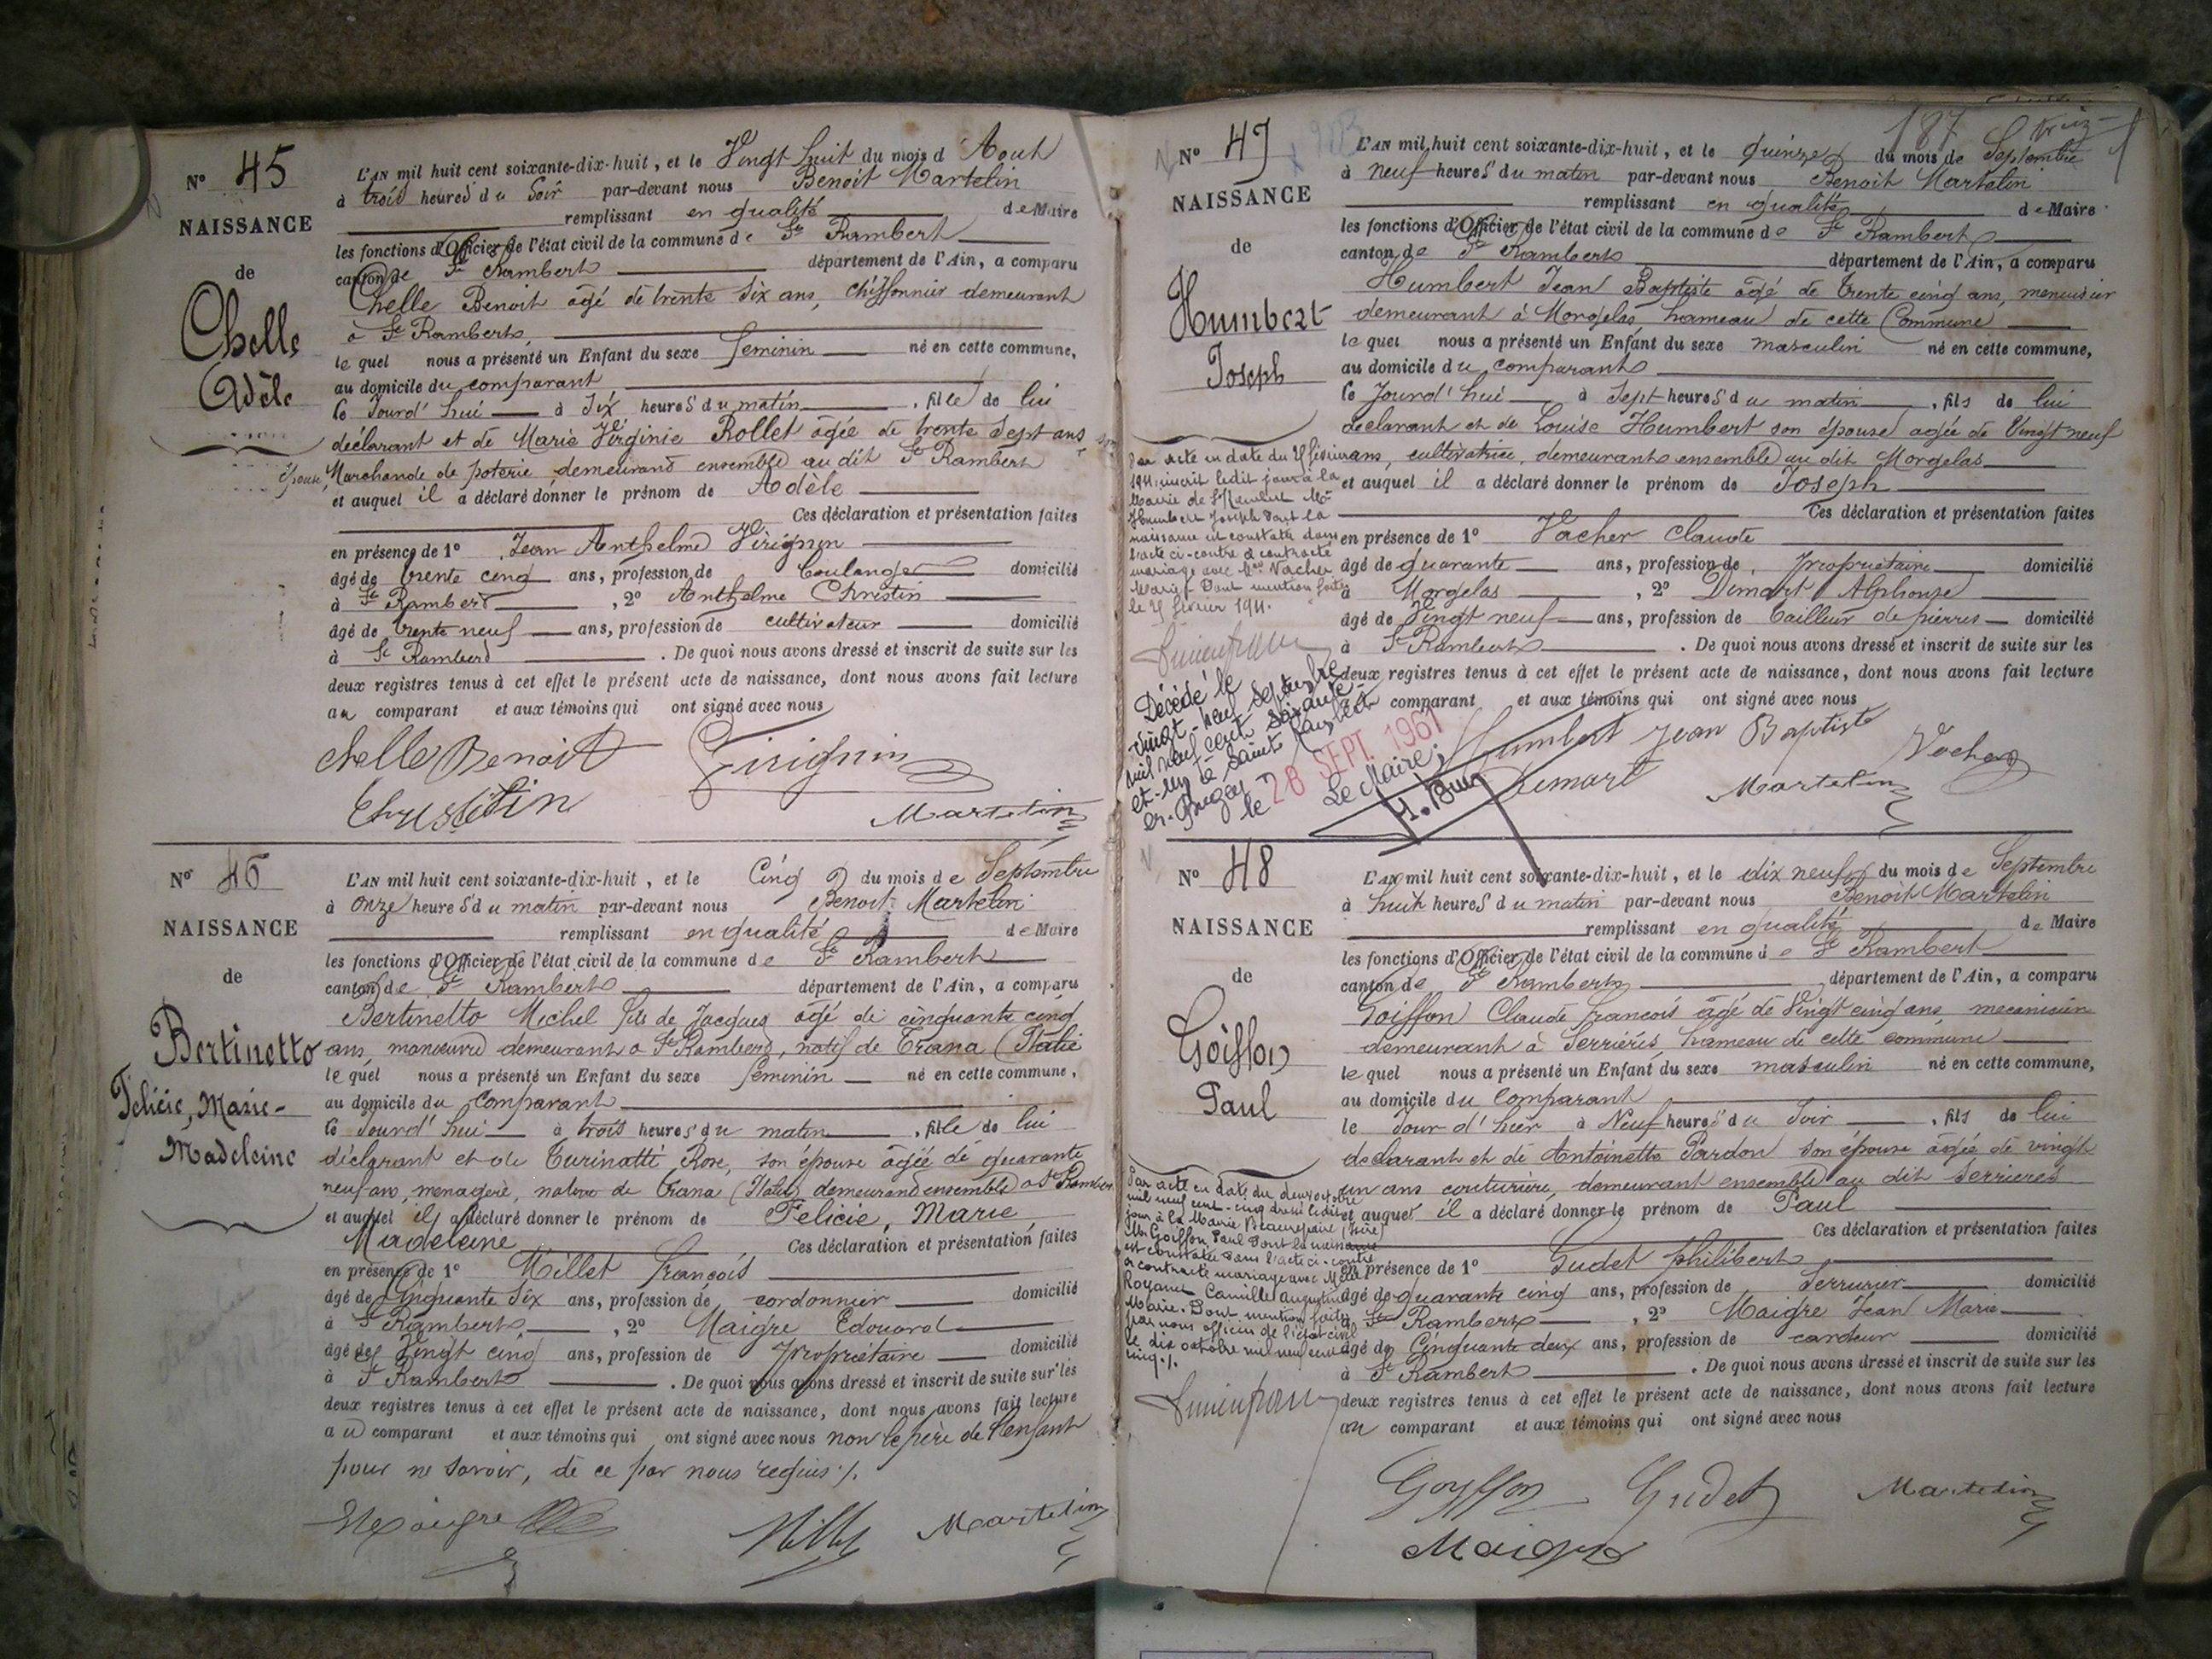 N° 45
NAISSANCE
de
Chelle
Adèle
L'AN mil huit cent soixante-dix-huit, et le Vingt huit du mois d'Aout
à trois heures du Soir par-devant nous Benoit Martelin
remplissant en qualité de Maire
les fonctions d'Officier de l'état civil de la commune de St Rambert
canton de St Rambert département de l'Ain, a comparu
Chelle Benoit agé de trente six ans, chiffonnier demeurant
à St Rambert,
le quel nous a présenté un Enfant du sexe feminin né en cette commune,
au domicile du comparant
ce Jourd'hui à Six heures du matin, fille de lui
déclarant et de Marie Virginie Rollet agée de trente sept ans son
épouse, Marchande de poterie demeurand ensemble au dit St Rambert
et auquel il a déclaré donner le prénom de Adèle
Ces déclaration et présentation faites
en présence de 1° Jean Anthelme Virignin
âgé de trente cinq ans, profession de boulanger domicilié
à St Rambert, 2° Anthelme Christin
âgé de trente neuf ans, profession de cultivateur domicilié
à St Rambert. De quoi nous avons dressé et inscrit de suite sur les
deux registres tenus à cet effet le présent acte de naissance, dont nous avons fait lecture
au comparant et aux témoins qui ont signé avec nous
Chelle Benoit Virignin
Christin Martelin
N° 46
NAISSANCE
de
Bertinetto
Félicie, Marie-
Madeleine
L'AN mil huit cent soixante-dix-huit, et le Cinq du mois de Septembre
à onze heures du matin par-devant nous Benoit Martelin
remplissant en qualité de Maire
les fonctions d'Officier de l'état civil de la commune de St Rambert
canton de St Rambert département de l'Ain, a comparu
Bertinetto Michel fils de Jacques agé de cinquante cinq
ans, manoeuvre demeurant a St Rambert, natif de Triana (Italie
le quel nous a présenté un Enfant du sexe feminin né en cette commune,
au domicile du Comparant
ce Jourd'hui à trois heures du matin, fille de lui
déclarant et de Turinatti Rose, son épouse agée de quarante
neuf ans, menagère, native de Triana (Italie) demeurand ensemble a St Rambert
et auquel il a déclaré donner le prénom de Felicie, Marie,
Madeleine Ces déclaration et présentation faites
en présence de 1° Millet François
âgé de Cinquante Six ans, profession de cordonnier domicilié
à St Rambert, 2° Maigre Edouard
âgé de Vingt cinq ans, profession de Propriétaire domicilié
à St Rambert. De quoi nous avons dressé et inscrit de suite sur les
deux registres tenus à cet effet le présent acte de naissance, dont nous avons fait lecture
au comparant et aux témoins qui ont signé avec nous non le père de l'enfant
pour ne savoir, de ce par nous requis ./.
Maigre Millet Martelin
187
N° 47
NAISSANCE
de
Humbert
Joseph
L'AN mil huit cent soixante-dix-huit, et le quinze du mois de Septembre
à neuf heures du matin par-devant nous Benoit Martelin
remplissant en qualité de Maire
les fonctions d'Officier de l'état civil de la commune de St Rambert
canton de St Rambert département de l'Ain, a comparu
Humbert Jean Baptiste agé de trente cinq ans, menuisier
demeurant à Morgelas hameau de cette Commune
le quel nous a présenté un Enfant du sexe masculin né en cette commune,
au domicile du comparant
ce Jourd'hui à Sept heures du matin, fils de lui
declarant et de Louise Humbert son épouse agée de Vingt neuf
ans, cultivatrice, demeurant ensemble au dit Morgelas
et auquel il a déclaré donner le prénom de Joseph
Ces déclaration et présentation faites
en présence de 1° Vacher Claude
âgé de quarante ans, profession de Propriétaire domicilié
à Morgelas, 2° Dimart Alphonse
âgé de Vingt neuf ans, profession de tailleur de pierres domicilié
à St Rambert. De quoi nous avons dressé et inscrit de suite sur les
deux registres tenus à cet effet le présent acte de naissance, dont nous avons fait lecture
au comparant et aux témoins qui ont signé avec nous
Humbert Jean Baptiste Vacher
Dimart Martelin
Par acte en date du février
1911, inscrit ledit jour à la
Mairie de St Rambert Mr
Humbert Joseph dont la
naissance est constatée dans
l'acte ci-contre a contracté
mariage avec Vacher
Marie. Dont mention faite
le février 1911.
Décédé le
vingt-neuf septembre
mil neuf cent soixante-
et-un à Saint Rambert
en-Bugey
le 28 SEPT. 1961
Le Maire;
N° 48
NAISSANCE
de
Goiffon
Paul
L'AN mil huit cent soixante-dix-huit, et le dix neuf du mois de Septembre
à huit heures du matin par-devant nous Benoit Martelin
remplissant en qualité de Maire
les fonctions d'Officier de l'état civil de la commune de St Rambert
canton de St Rambert département de l'Ain, a comparu
Goiffon Claude francois agé de Vingt cinq ans, mecanicien
demeurant à Serrières, hameau de cette commune
le quel nous a présenté un Enfant du sexe masculin né en cette commune,
au domicile du Comparant
le Jour d'hier à Neuf heures du Soir, fils de lui
declarant et de Antoinette Pardon son épouse agée de vingt
un ans couturière, demeurant ensemble au dit Serrieres
et auquel il a déclaré donner le prénom de Paul
Ces déclaration et présentation faites
en présence de 1° Gudet Philibert
âgé de quarante cinq ans, profession de Serrurier domicilié
à St Rambert, 2° Maigre Jean Marie
âgé de Cinquante deux ans, profession de cardeur domicilié
à St Rambert. De quoi nous avons dressé et inscrit de suite sur les
deux registres tenus à cet effet le présent acte de naissance, dont nous avons fait lecture
au comparant et aux témoins qui ont signé avec nous
Goyffon Gudet Martelin
Maigre
Par acte en date du deux octobre
mil neuf cent-cinq dressé ledit
jour à la Mairie Beaurepaire (Isère)
Mr Goiffon Paul dont la naissance
est constatée dans l'acte ci-contre
a contracté mariage avec Melle
Royanet Camille Augustine
Marie. Dont mention faite
par nous officier de l'état civil
le dix octobre mil neuf cent
cinq ./.